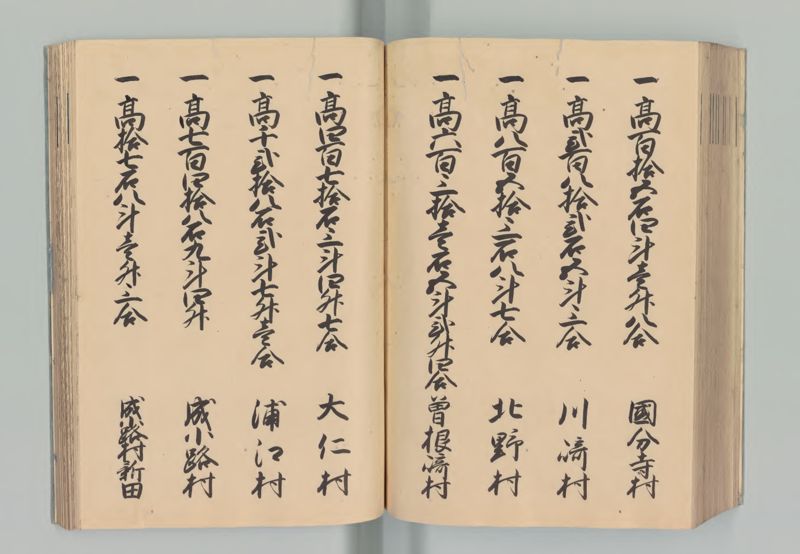 一高百拾五石四斗壱升八合 國分寺村
一高弐百八拾弐石五斗三合 川﨑村
一高八百五拾三石八斗七合 北野村
一高六百三拾壱石五斗弐升四合 曽根﨑村
一高四百七拾石三斗四升七合 大仁村
一高千弐拾八石弐斗七升壱合 浦江村
一高七百四拾八石九斗四升 成小路村
一高拾七石八斗壱升三合 成小路村新田